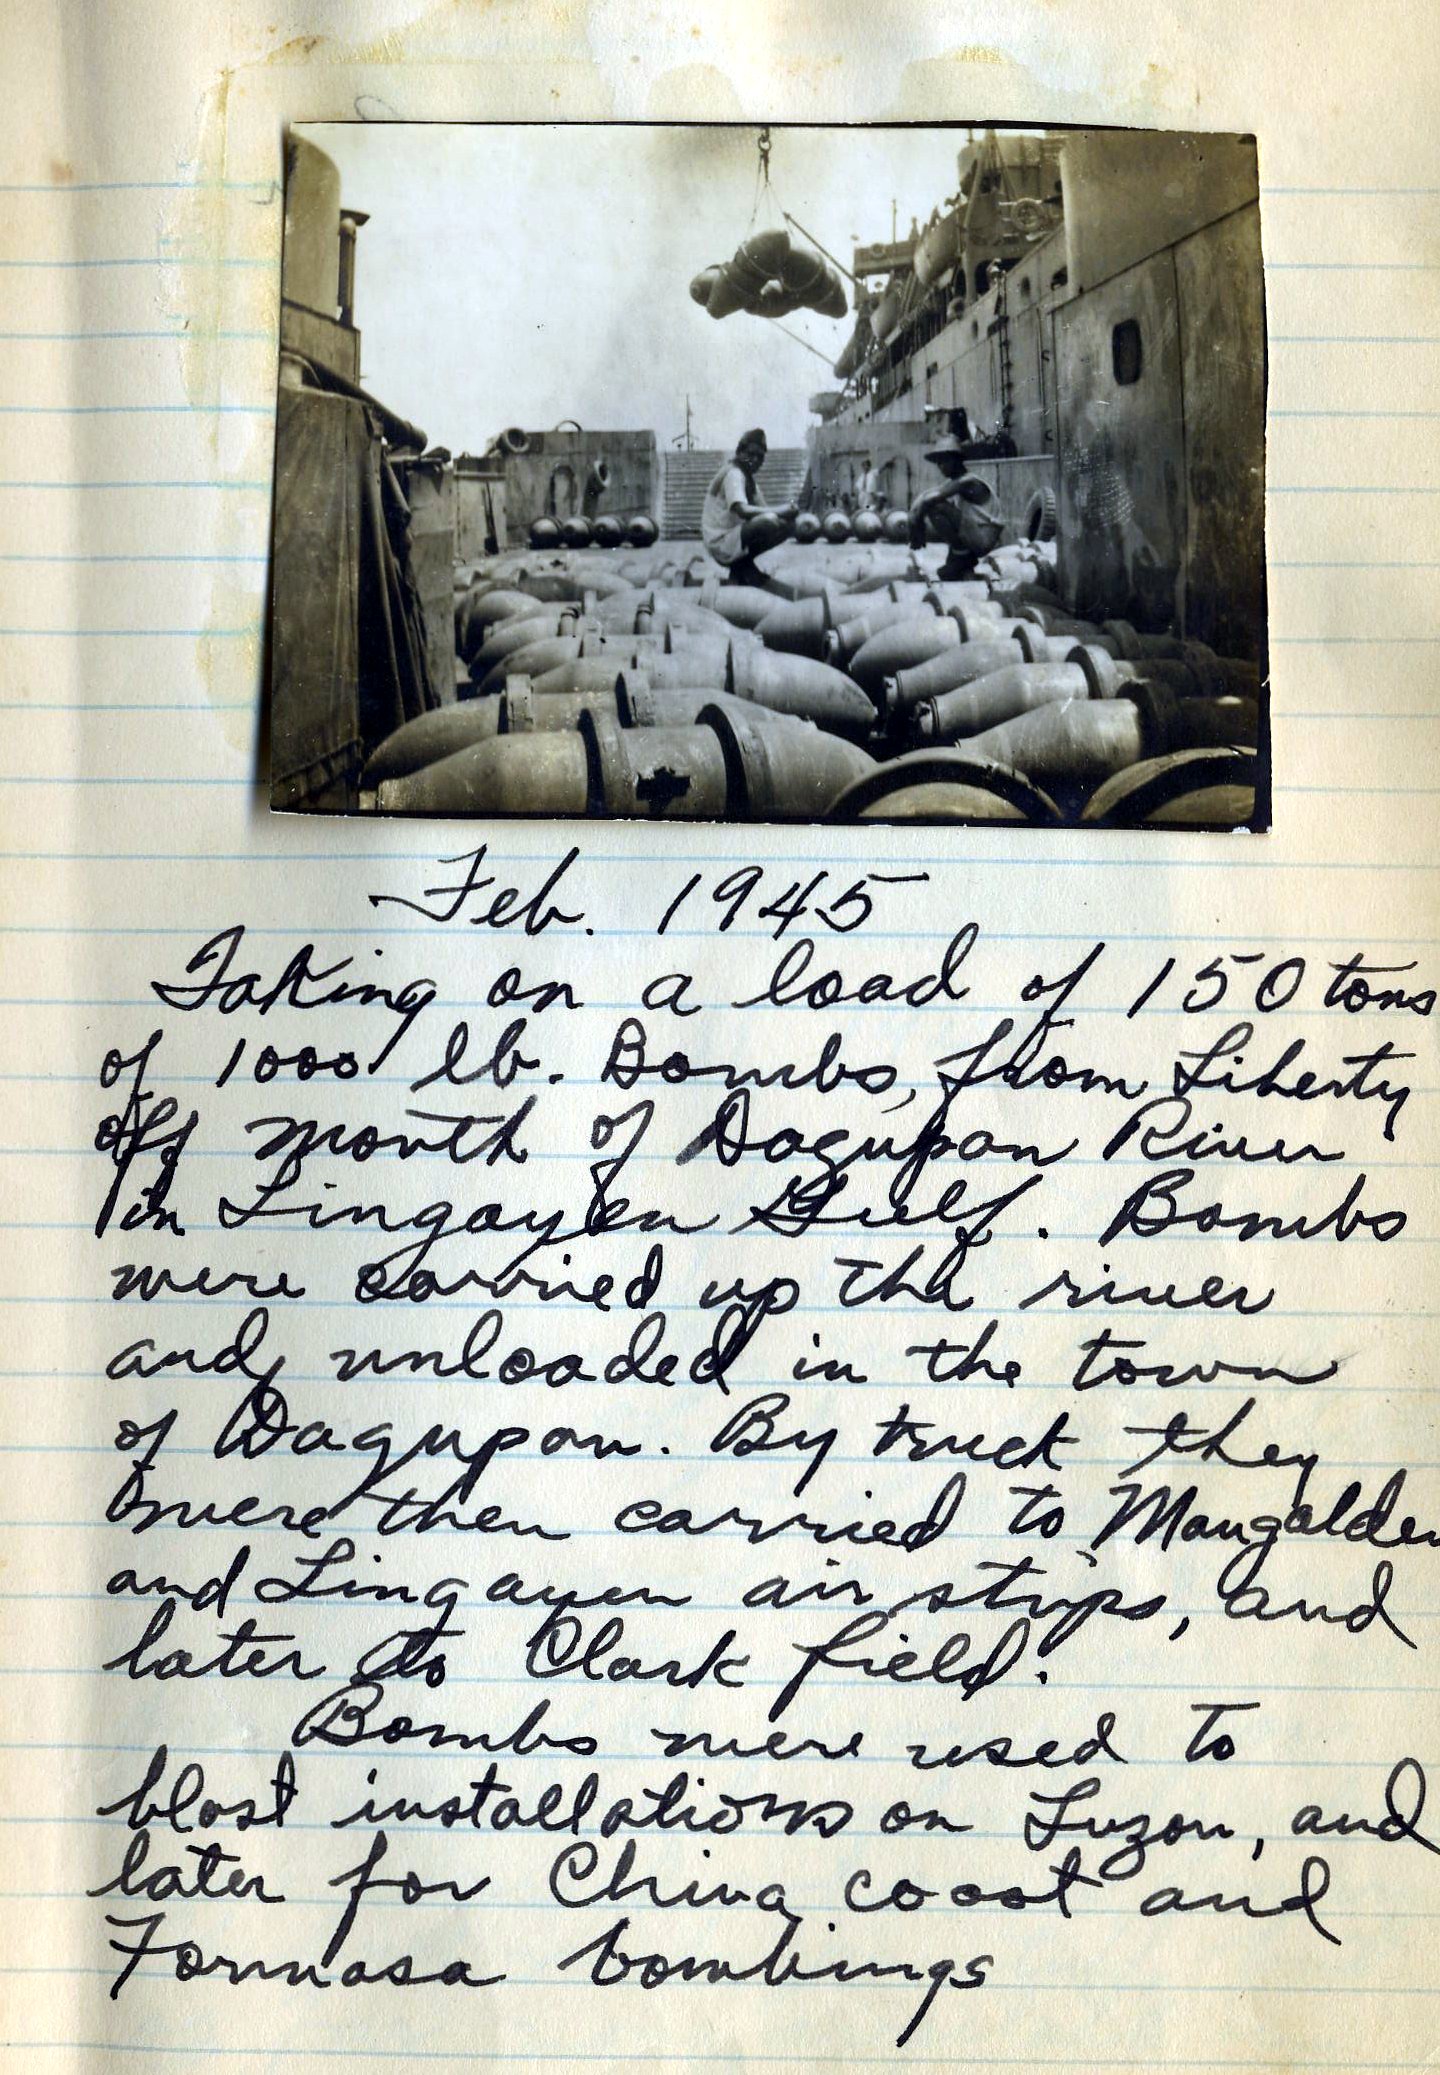 Feb. 1945
Taking on a load of 150 tons
of 1000 lb. Bombs, from Liberty
off mouth of Dagupan River
in Lingayen Gulf. Bombs
were carried up the river
and unloaded in the town
of Dagupan. By truck they
were then carried to Mangalden
and Lingayen air strips, and
later to Clark field.
Bombs were used to
blast installations on Luzon, and
later for China coast and
Formosa bombings